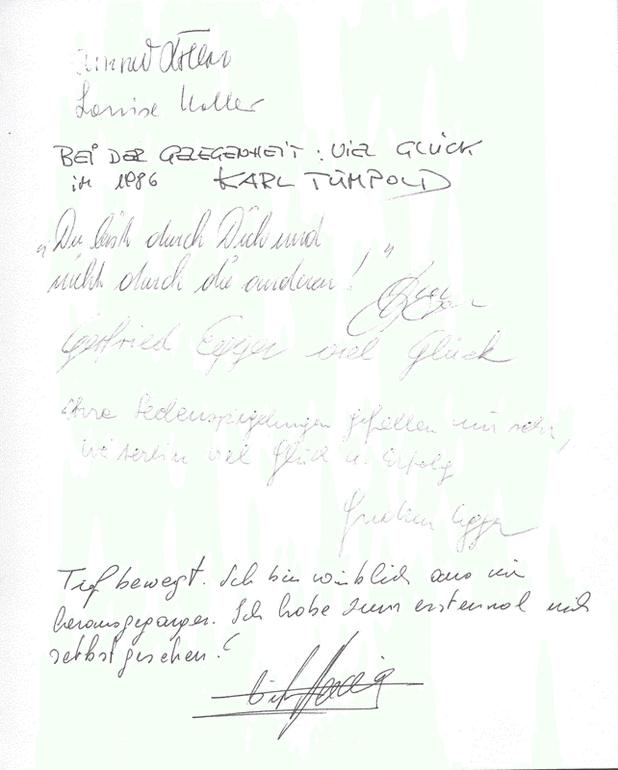 Louise Koller
BEI DER GELEGENHEIT: VIEL GLÜCK
IN 1986 KARL TÜMPOLD
"Du bist durch Dich und
nicht durch die anderen!"
Gottfried Egger viel Glück
Ihre Seelenspiegelungen gefallen mir sehr,
weiterhin viel Glück u. Erfolg
Egger
Tief bewegt. Ich bin wirklich aus mir
herausgegangen. Ich habe zum erstenmal mich
selbst gesehen!